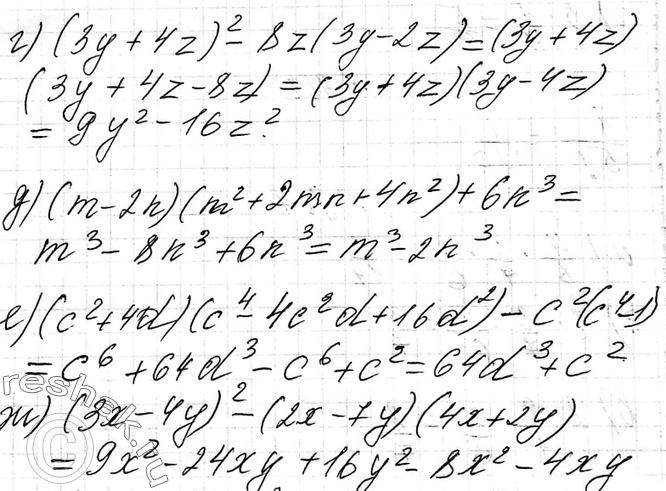 г) (3y + 4z)² - 8z(3y - 2z) = (3y + 4z)
(3y + 4z - 8z) = (3y + 4z)(3y - 4z)
= 9y² - 16z².
д) (m - 2n)(m² + 2mn + 4n²) + 6n³ =
m³ - 8n³ + 6n³ = m³ - 2n³
е) (c² + 4d)(c⁴ - 4c²d + 16d²) - c²(c⁴-1)
= c⁶ + 64d³ - c⁶ + c² = 64d³ + c²
ж) (3x - 4y)² - (2x - 7y)(4x + 2y)
= 9x² - 24xy + 16y² - 8x² - 4xy